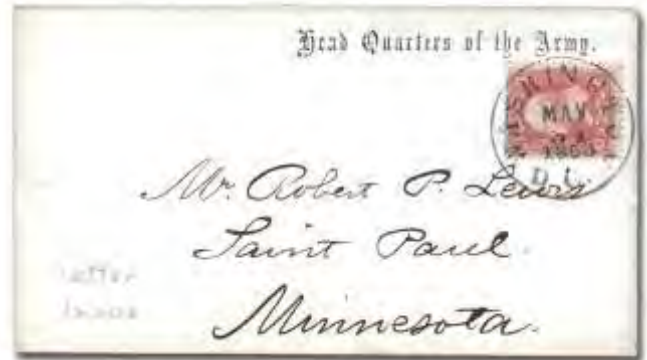 Head Quarters of the Army.
WASHINGTON
MAY
D.C.
Mr. Robert P. Lewis.
Saint Paul.
Minnesota.